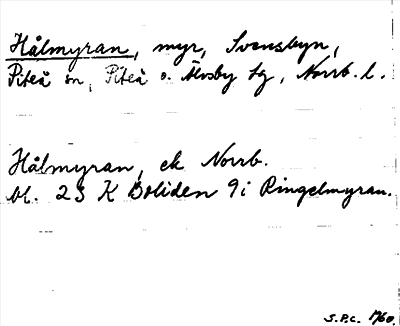 Hålmyran, myr, Svensbyn,
Piteå sn, Piteå o. Älvsby tg, Norrb. l.
Hålmyran, ek Norrb.
bl. 23 K Boliden 9i Ringelmyran.
S.P.C. 1960.